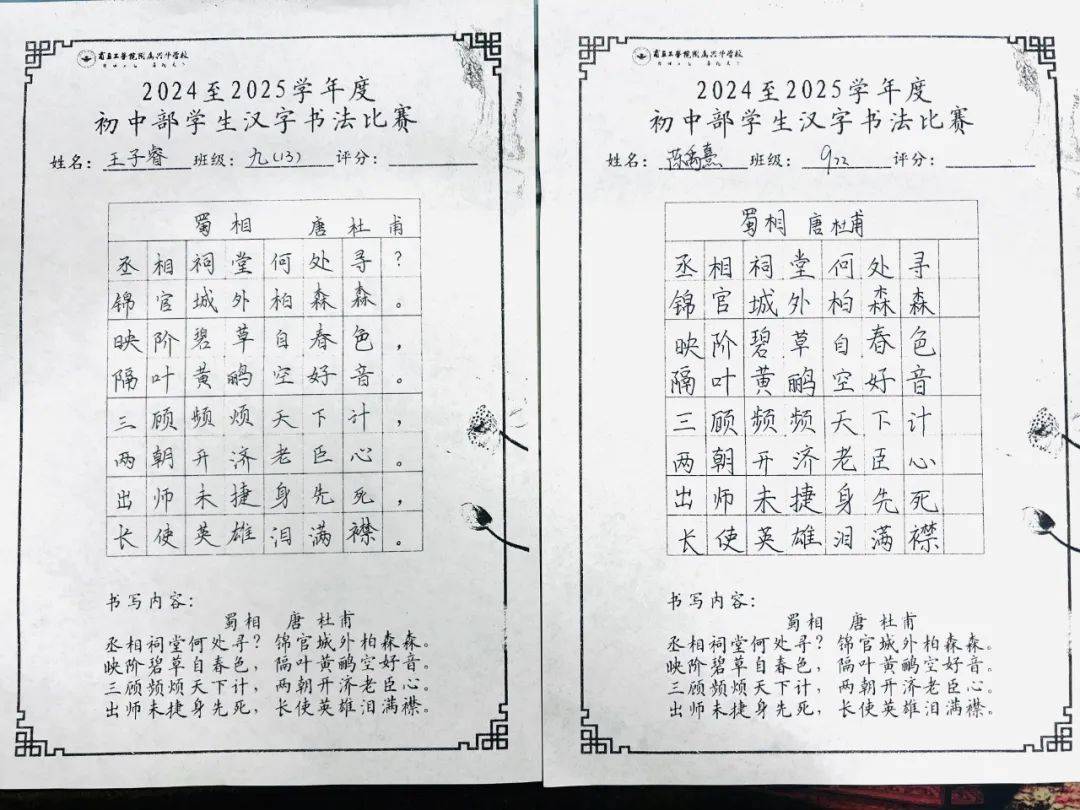 商丘工学院附属兴华学校
2024至2025学年度
初中部学生汉字书法比赛
姓名：王子睿 班级：九(13) 评分：
蜀相 唐 杜甫
丞相祠堂何处寻？
锦官城外柏森森。
映阶碧草自春色，
隔叶黄鹂空好音。
三顾频烦天下计，
两朝开济老臣心。
出师未捷身先死，
长使英雄泪满襟。
书写内容：
蜀相 唐 杜甫
丞相祠堂何处寻？ 锦官城外柏森森。
映阶碧草自春色， 隔叶黄鹂空好音。
三顾频烦天下计， 两朝开济老臣心。
出师未捷身先死， 长使英雄泪满襟。
商丘工学院附属兴华学校
2024至2025学年度
初中部学生汉字书法比赛
姓名：陈禹熹 班级：922 评分：
蜀相 唐 杜甫
丞相祠堂何处寻
锦官城外柏森森
映阶碧草自春色
隔叶黄鹂空好音
三顾频频天下计
两朝开济老臣心
出师未捷身先死
长使英雄泪满襟
书写内容：
蜀相 唐 杜甫
丞相祠堂何处寻？ 锦官城外柏森森。
映阶碧草自春色， 隔叶黄鹂空好音。
三顾频烦天下计， 两朝开济老臣心。
出师未捷身先死， 长使英雄泪满襟。